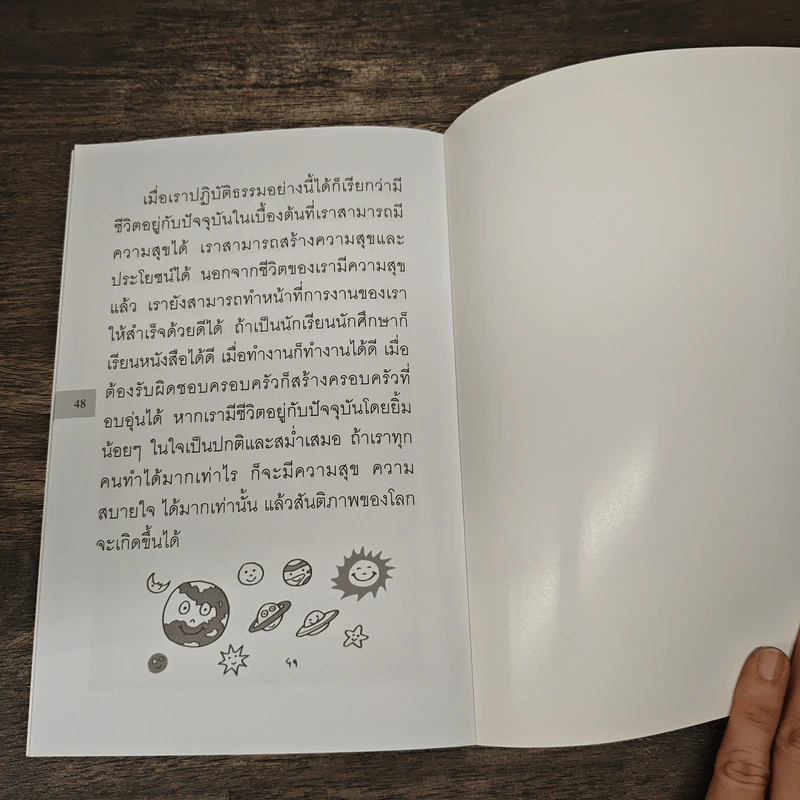 เมื่อเราปฏิบัติธรรมอย่างนี้ได้ก็เรียกว่ามี
ชีวิตอยู่กับปัจจุบันในเบื้องต้นที่เราสามารถมี
ความสุขได้ เราสามารถสร้างความสุขและ
ประโยชน์ได้ นอกจากชีวิตของเรามีความสุข
แล้ว เรายังสามารถทำหน้าที่การงานของเรา
ให้สำเร็จด้วยดีได้ ถ้าเป็นนักเรียนนักศึกษาก็
เรียนหนังสือได้ดี เมื่อทำงานก็ทำงานได้ดี เมื่อ
ต้องรับผิดชอบครอบครัวก็สร้างครอบครัวที่
อบอุ่นได้ หากเรามีชีวิตอยู่กับปัจจุบันโดยยิ้ม
น้อยๆ ในใจเป็นปกติและสม่ำเสมอ ถ้าเราทุก
คนทำได้มากเท่าไร ก็จะมีความสุข ความ
สบายใจ ได้มากเท่านั้น แล้วสันติภาพของโลก
จะเกิดขึ้นได้
48